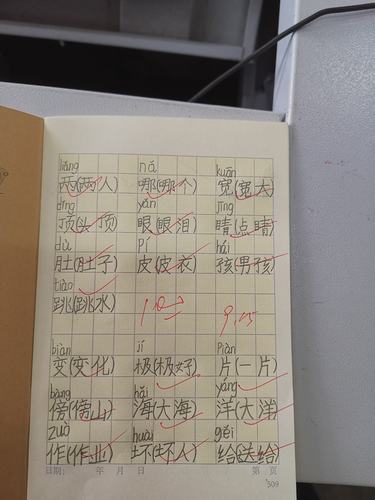 liǎng nǎ kuān
两(两人) 哪(哪个) 宽(宽大)
dǐng yǎn jīng
顶(头顶) 眼(眼泪) 睛(点睛)
dù pí hái
肚(肚子) 皮(皮衣) 孩(男孩)
tiào
跳(跳水) 100 9.15
biàn jí piàn
变(变化) 极(极好) 片(一片)
bàng hǎi yáng
傍(傍山) 海(大海) 洋(大洋)
zuò huài gěi
作(作业) 坏(坏人) 给(送给)
日期: 年 月 日 第 页
509